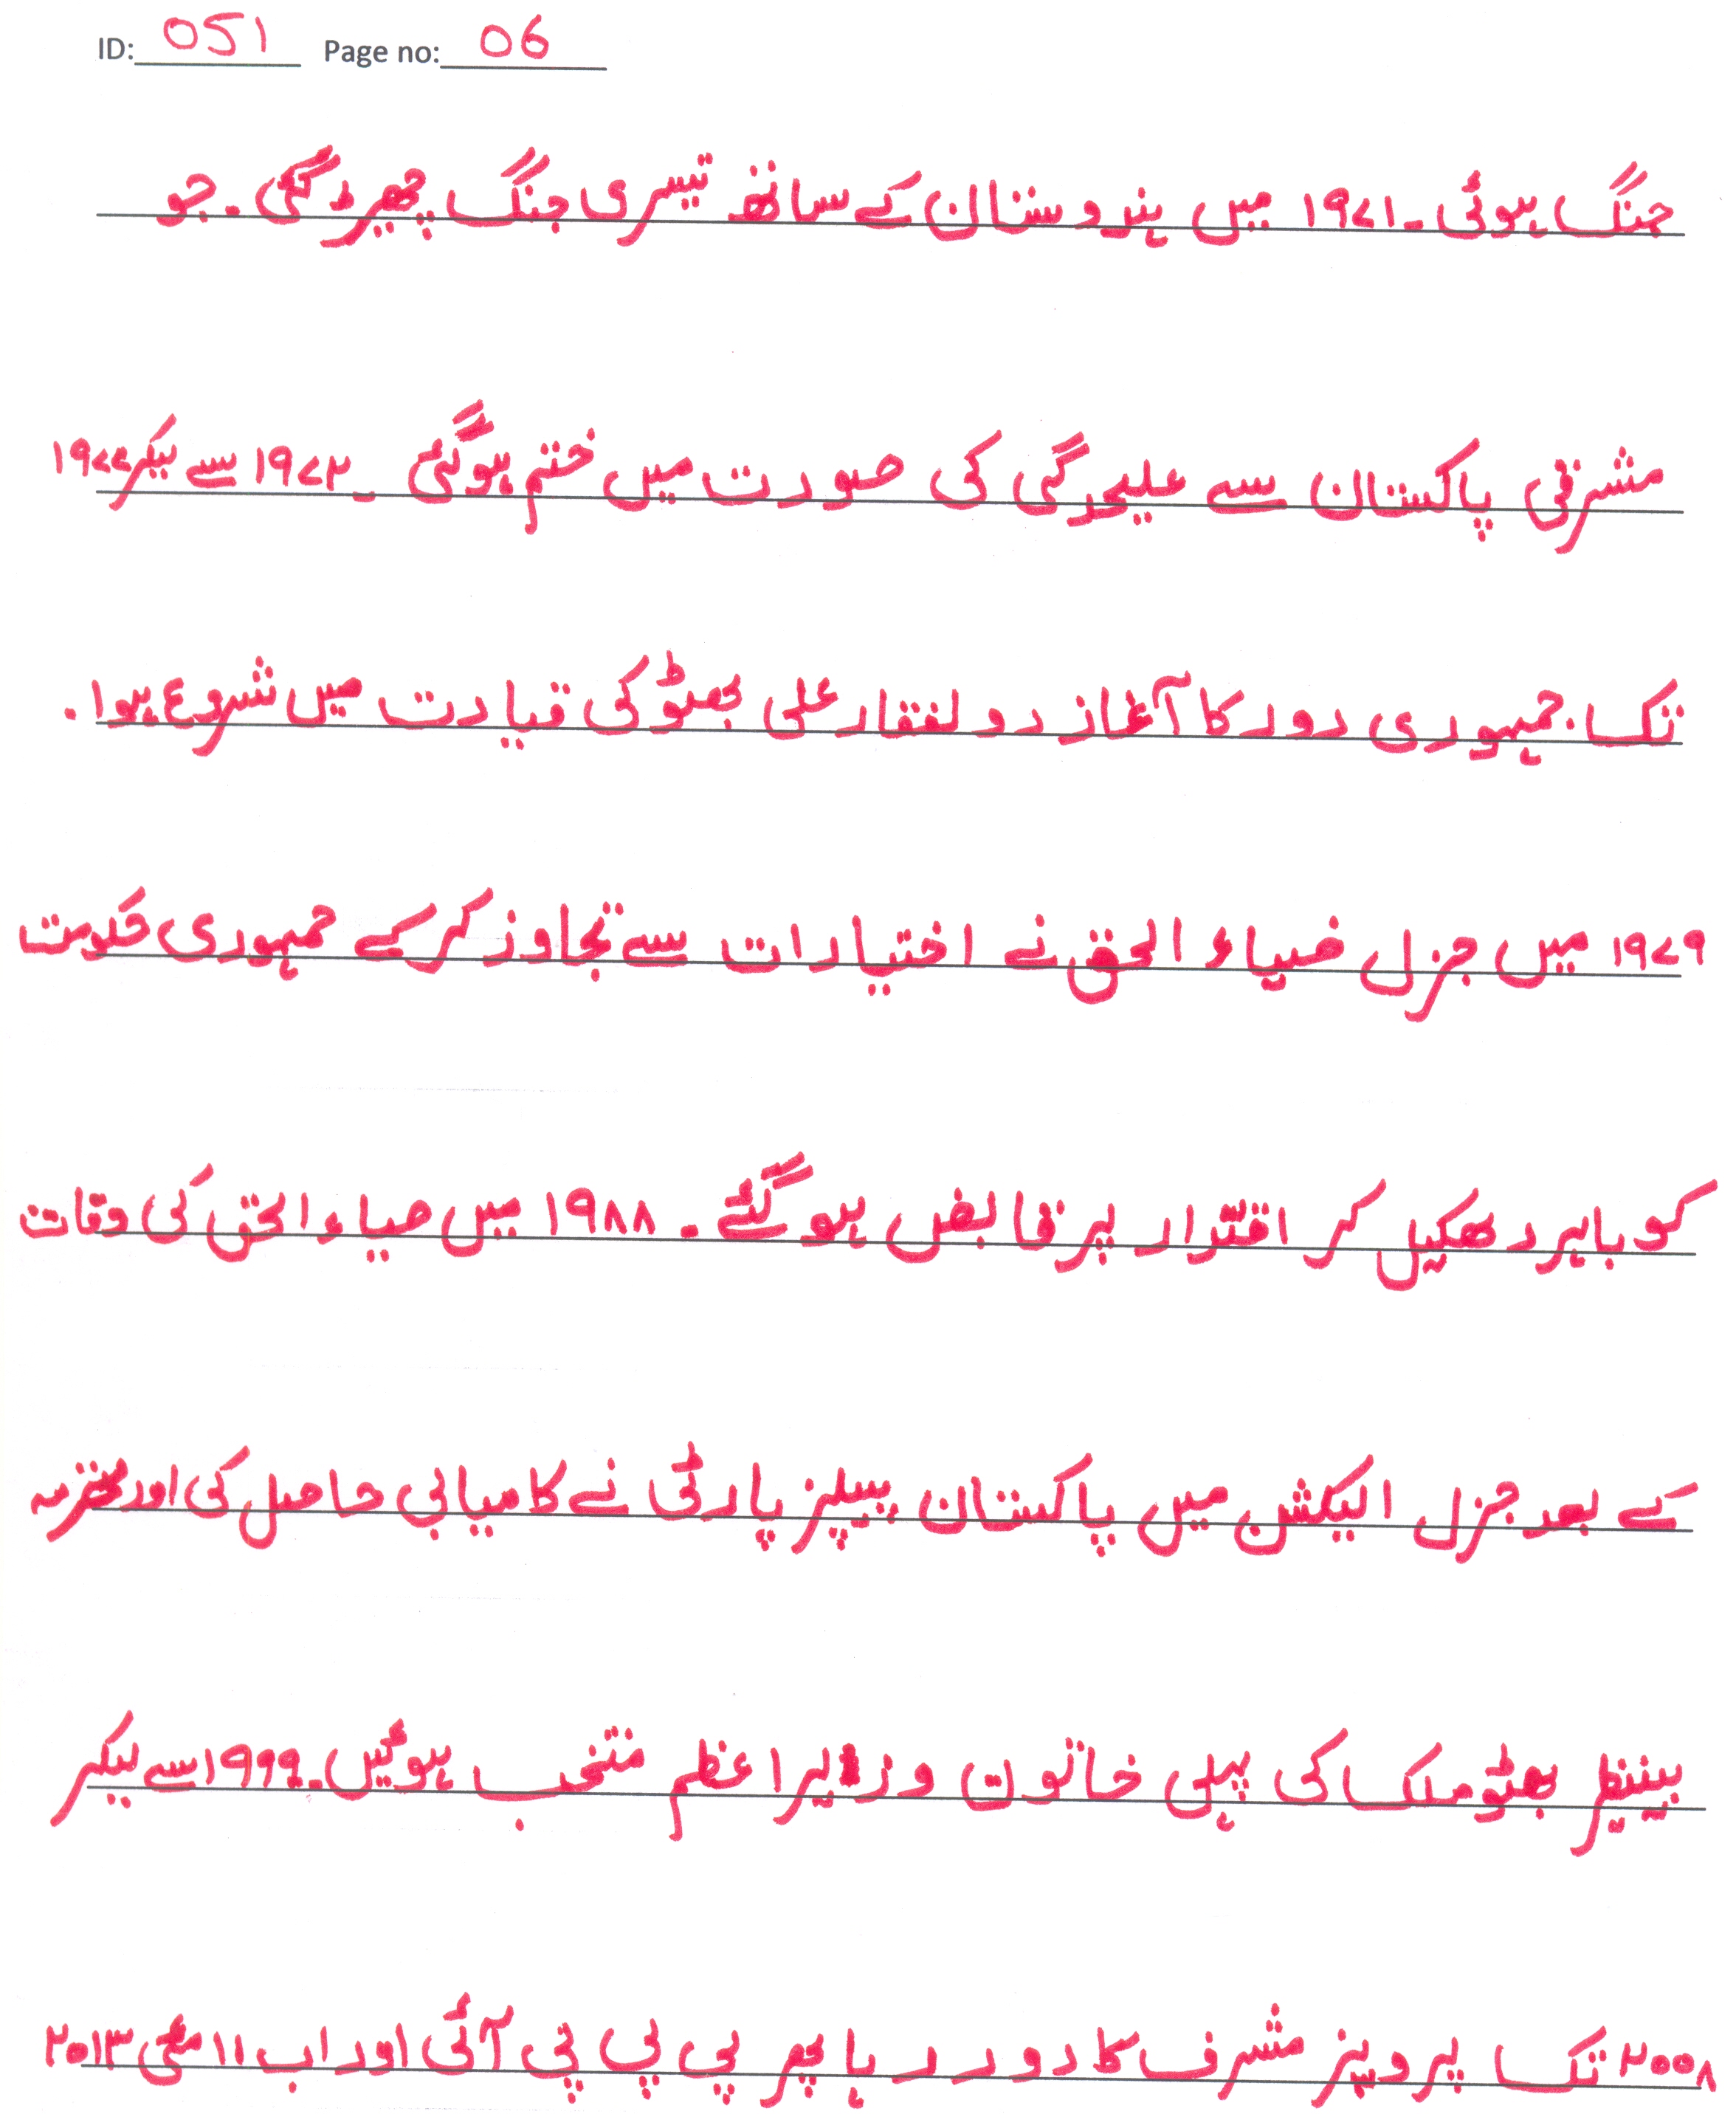 ID: 051 Page no: 06
جنگ ہوئی۔ ۱۹۷۱ میں ہندوستان کے ساتھ تیسری جنگ چھیڑ دگئی۔ جو
مشرقی پاکستان سے علیحدگی کی صورت میں ختم ہوگئی۔ ۱۹۷۲ سے لیکر ۱۹۷۷
تک جمہوری دور کا آغاز دولفقار علی بھٹو کی قیادت میں شروع ہوا۔
۱۹۷۹ میں جنرل ضیاء الحق نے اختیارات سے تجاوز کرکے جمہوری حکومت
کو باہر دھکیل کر اقتدار پر قابض ہو گئے۔ ۱۹۸۸ میں ضیاء الحق کی وفات
کے بعد جنرل الیکشن میں پاکستان پیپلز پارٹی نے کامیابی حاصل کی اور محترمہ
بینظیر بھٹو ملک کی پہلی خاتون وزیراعظم منتخب ہوئیں۔ ۱۹۹۹ سے لیکر
۲۰۰۸ تک پرویز مشرف کا دور رہا پھر پی پی پی آئی اور اب ۱۱ مئی ۲۰۱۳